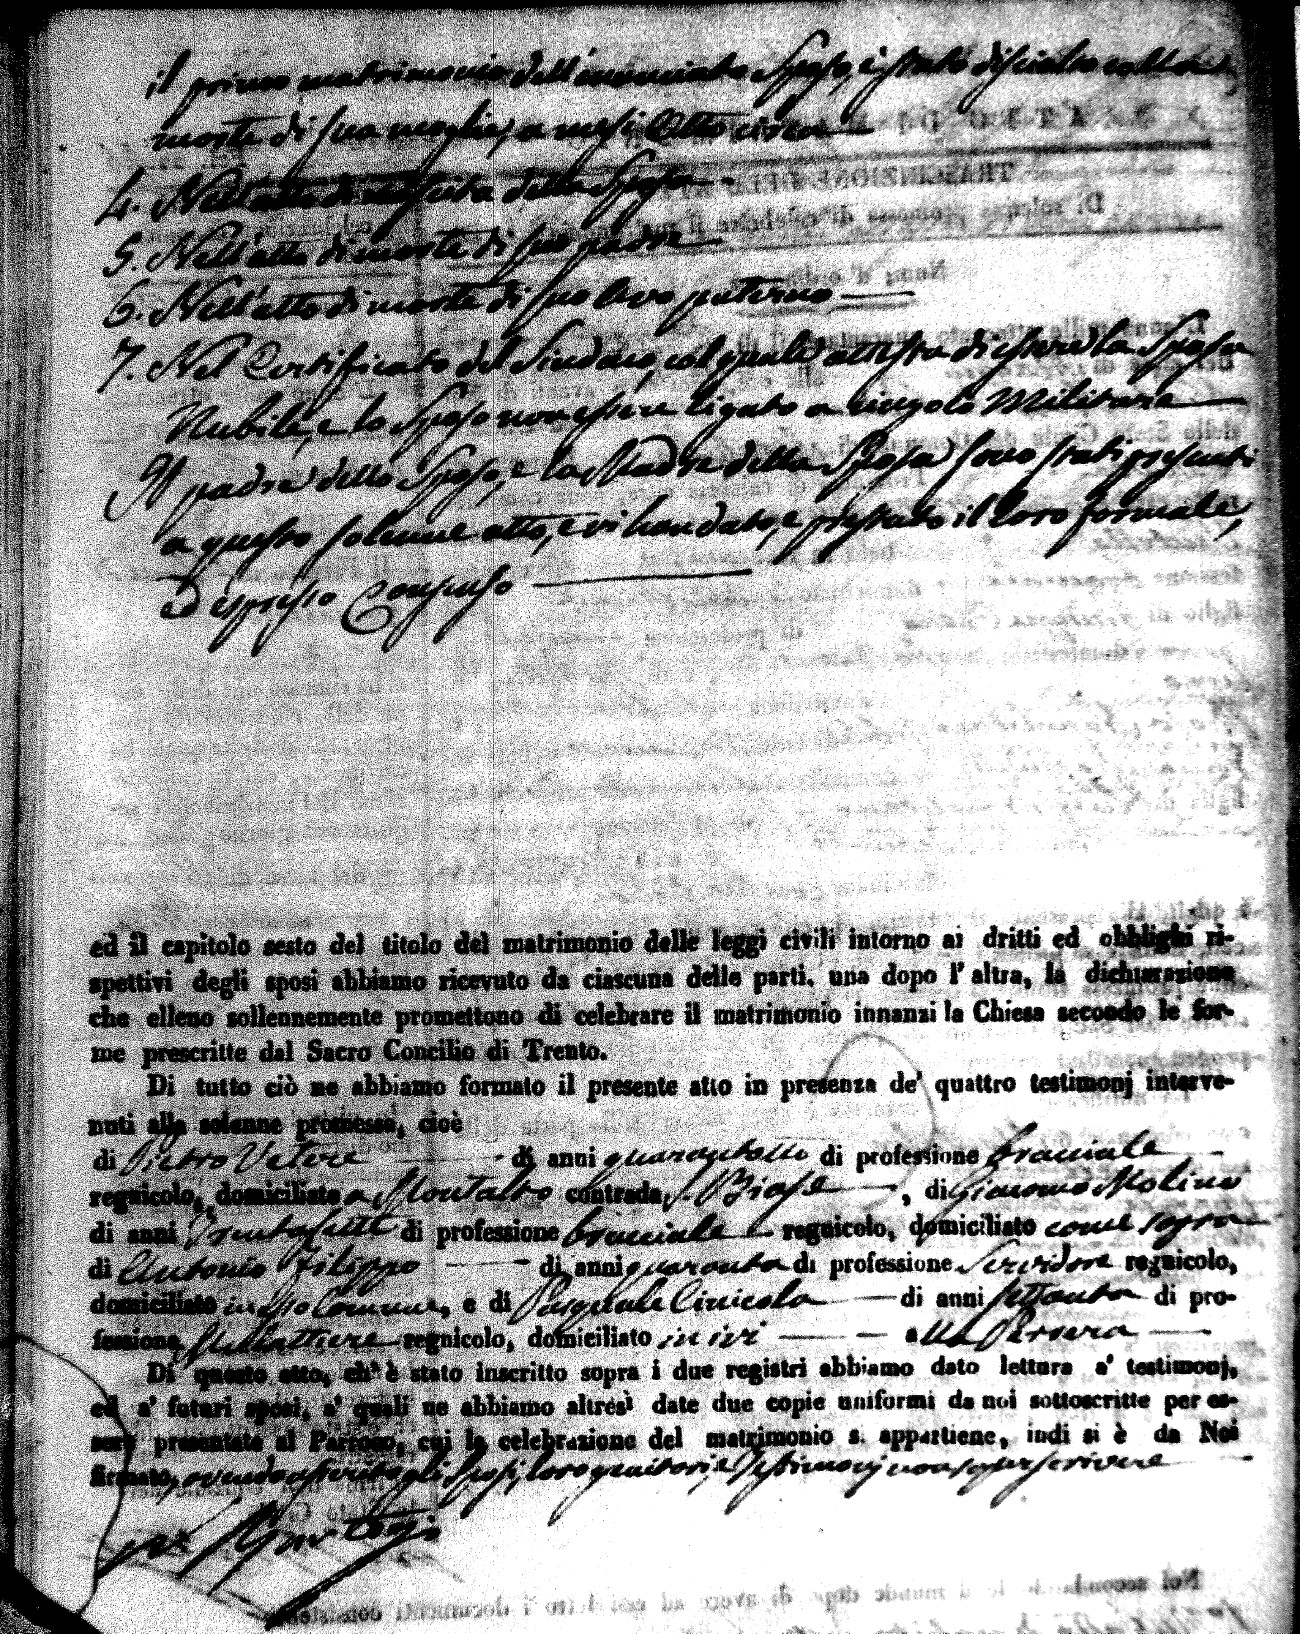 il primo matrimonio dell'enunciato Sposo, è stato disciolto colla
morte di sua moglie, a mesi Otto circa
4. Nell'atto di nascita della Sposa
5. Nell'atto di morte di suo padre
6. Nell'atto di morte di suo Avo paterno
7. Nel Certificato del Sindaco, col quale attesta di essere la Sposa
Nubile, e lo Sposo non essere ligato a vincolo Militare
Il padre dello Sposo, e la Madre della Sposa sono stati presenti
a questo solenne atto, e vi han dato, e prestato il loro formale,
ed espresso Consenso
ed il capitolo sesto del titolo del matrimonio delle leggi civili intorno ai dritti ed obblighi ri-
spettivi degli sposi abbiamo ricevuto da ciascuna delle parti, una dopo l'altra, la dichiarazione
che elleno sollennemente promettono di celebrare il matrimonio innanzi la Chiesa secondo le for-
me prescritte dal Sacro Concilio di Trento.
Di tutto ciò ne abbiamo formato il presente atto in presenza de' quattro testimonj interve-
nuti alla solenne promessa, cioè
di Pietro Vetere di anni quarantotto di professione bracciale
regnicolo, domiciliato a Montalto contrada S. Biase, di Giacomo Molino
di anni Trentasette di professione bracciale regnicolo, domiciliato come sopra
di Antonio Filippo di anni quaranta di professione Servidore regnicolo,
domiciliato in esso Comune, e di Pasquale Civicola di anni settanta di pro-
fessione regnicolo, domiciliato in ivi alla
Di questo atto, ch'è stato inscritto sopra i due registri abbiamo dato lettura a' testimonj,
ed a' futuri sposi, a' quali ne abbiamo altresì date due copie uniformi da noi sottoscritte per es-
sere presentate al Parroco, cui la celebrazione del matrimonio s. appartiene, indi si è da Noi
firmato, avendo asserito gli Sposi, loro genitori, e Testimonj non saper scrivere